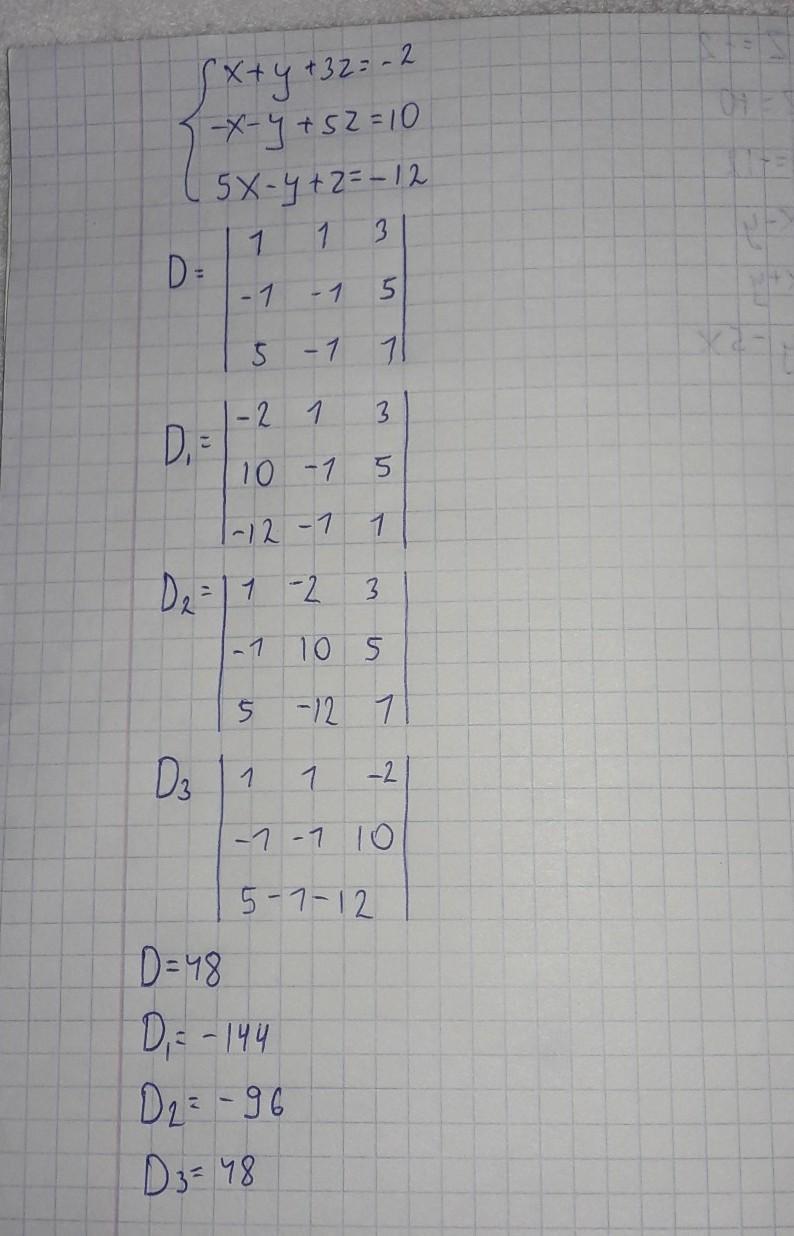 x+y+3z=-2
-x-y+5z=10
5x-y+z=-12
D= | 1 1 3 |
| -1 -1 5 |
| 5 -1 1 |
D₁= | -2 1 3 |
| 10 -1 5 |
| -12 -1 1 |
D₂= | 1 -2 3 |
| -1 10 5 |
| 5 -12 1 |
D₃ | 1 1 -2 |
| -1 -1 10 |
| 5 -1 -12 |
D=48
D₁=-144
D₂=-96
D₃=48